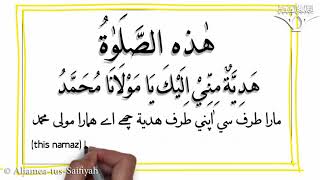 هٰذِهِ الصَّلَوٰةُ
هَدِيَّةٌ مِنِّيْ اِلَيْكَ يَا مَوْلَانَا مُحَمَّدُ
مارا طرف سي اپني طرف هدية چھے اے همارا مولى محمد
(this namaz)
© Aljamea-tus-Saifiyah